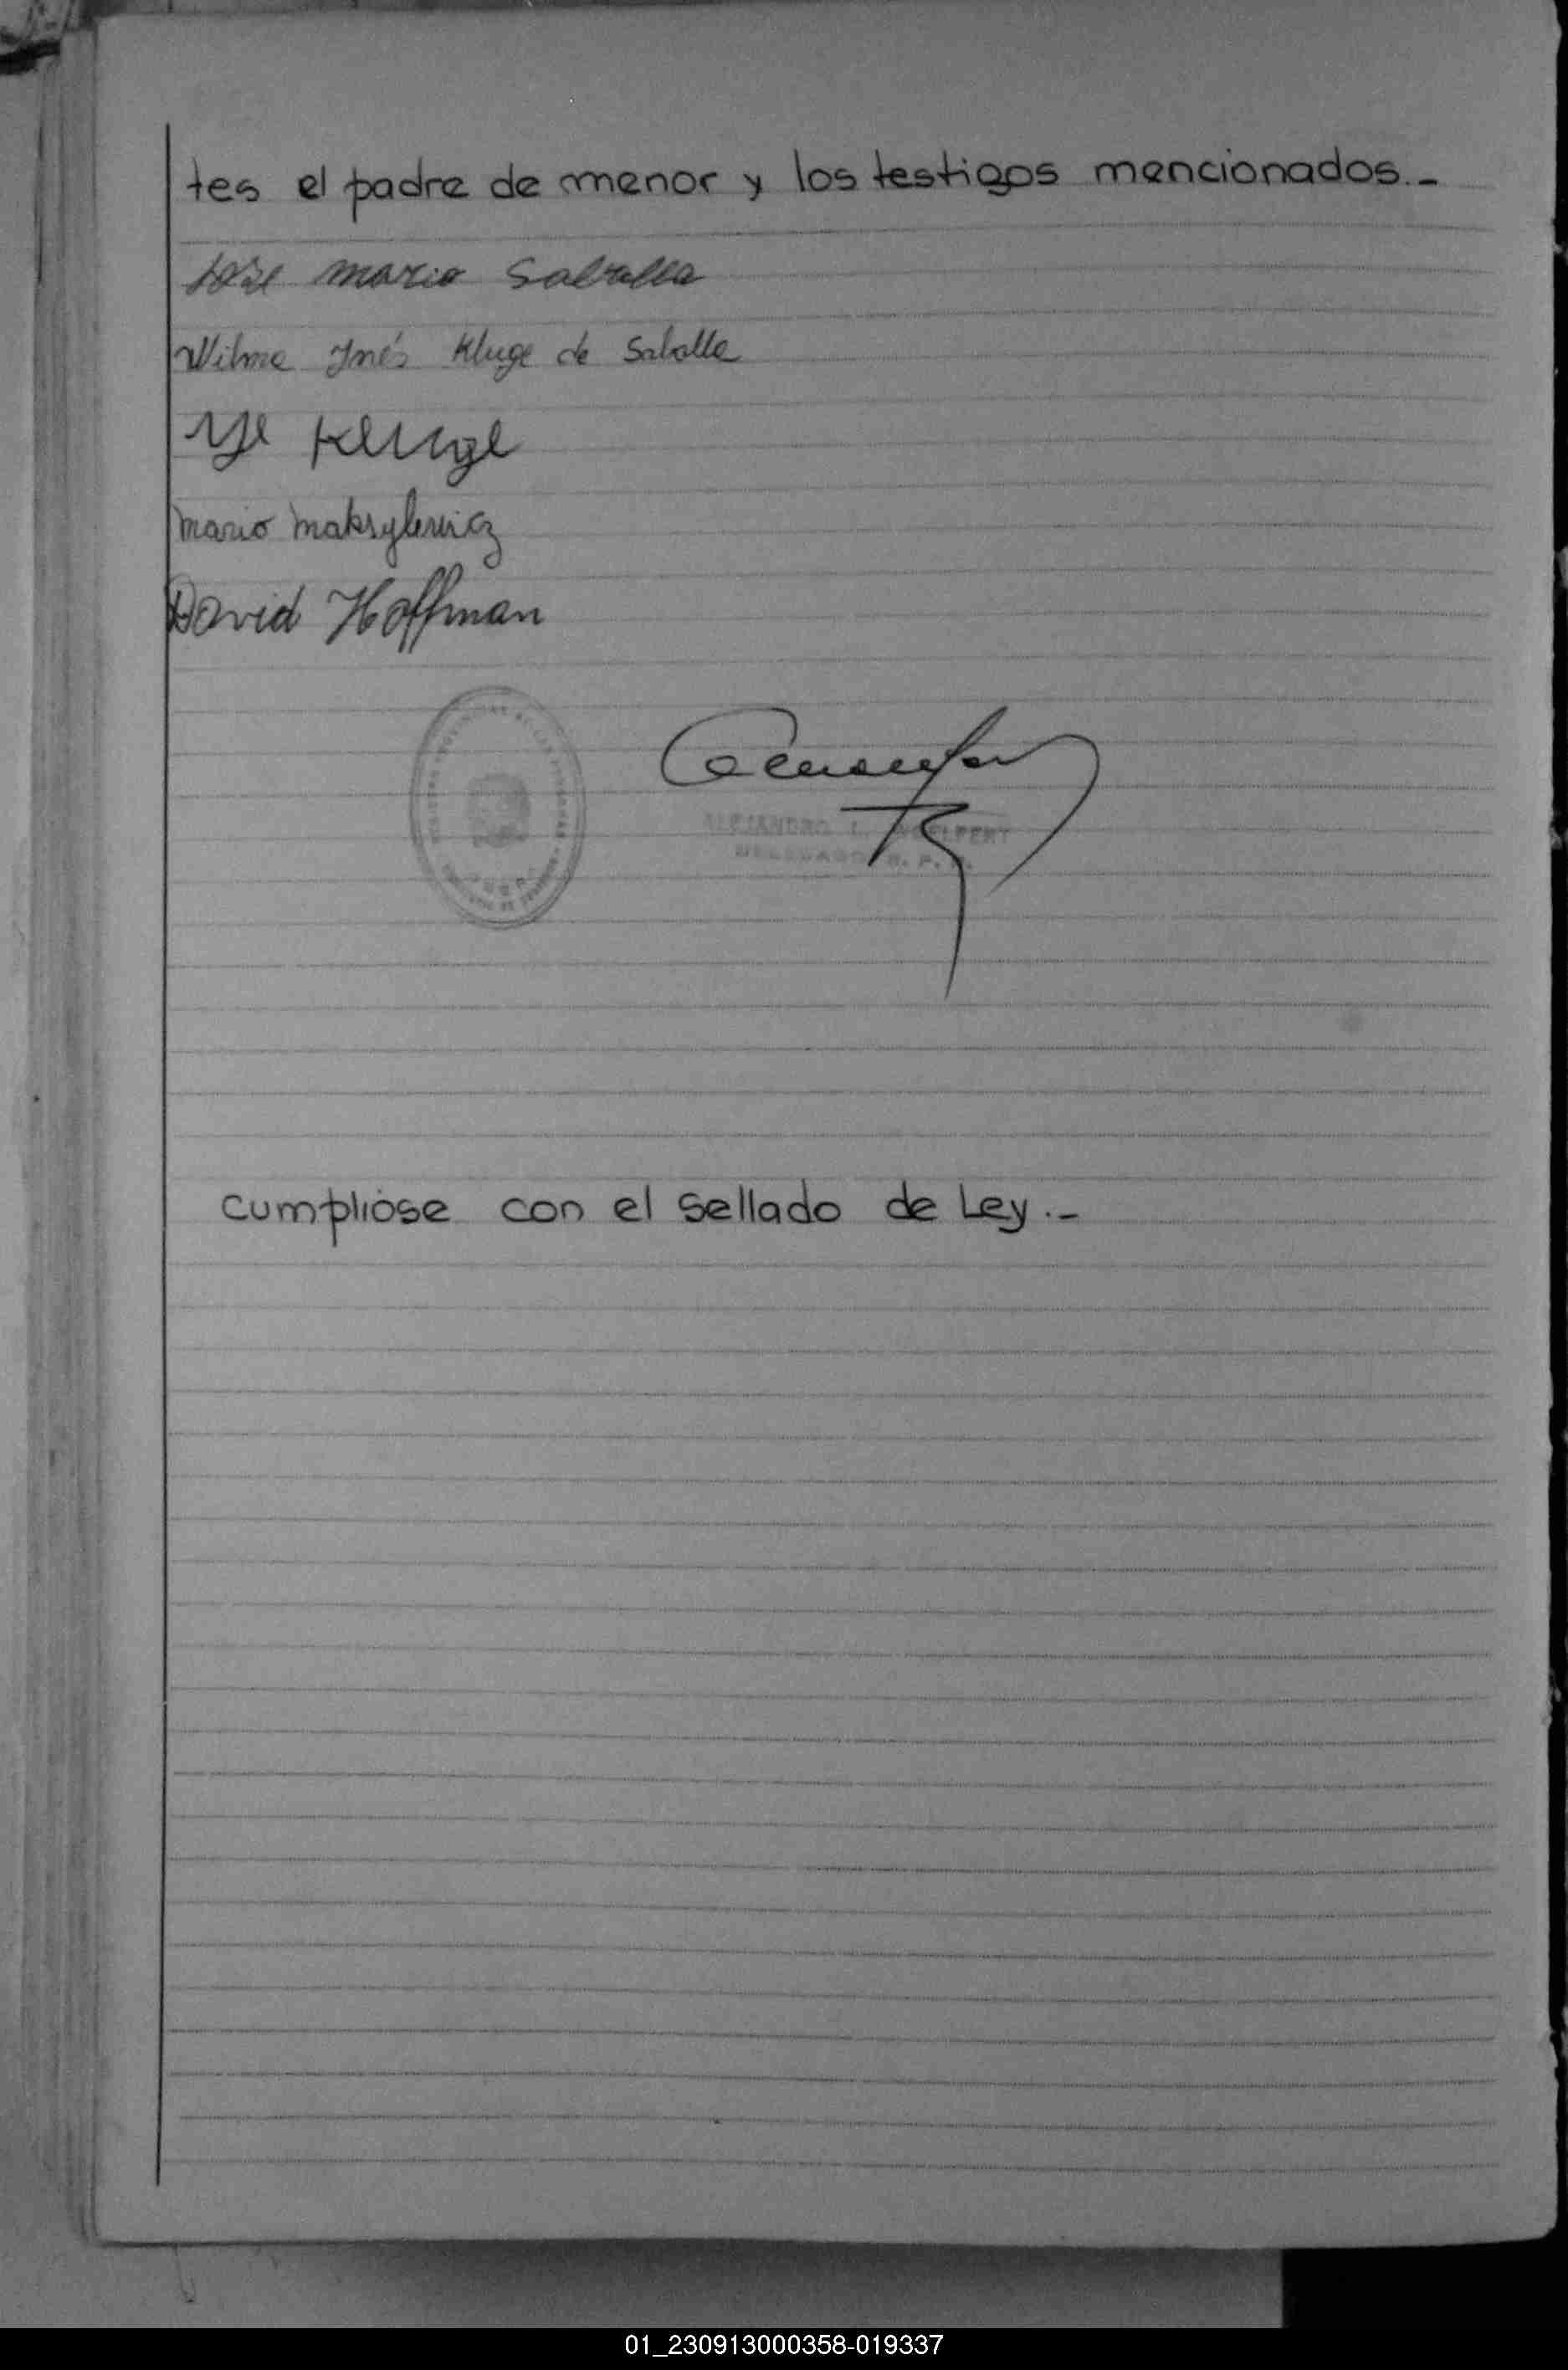 tes el padre de menor y los testigos mencionados.-
José Mario Saballa
Wilma Inés Kluge de Saballa
Kluge
Mario Maksylewicz
David Hoffman
ALEJANDRO L.
DELEGADO R. P.
Cumplióse con el sellado de Ley.-
01_230913000358-019337